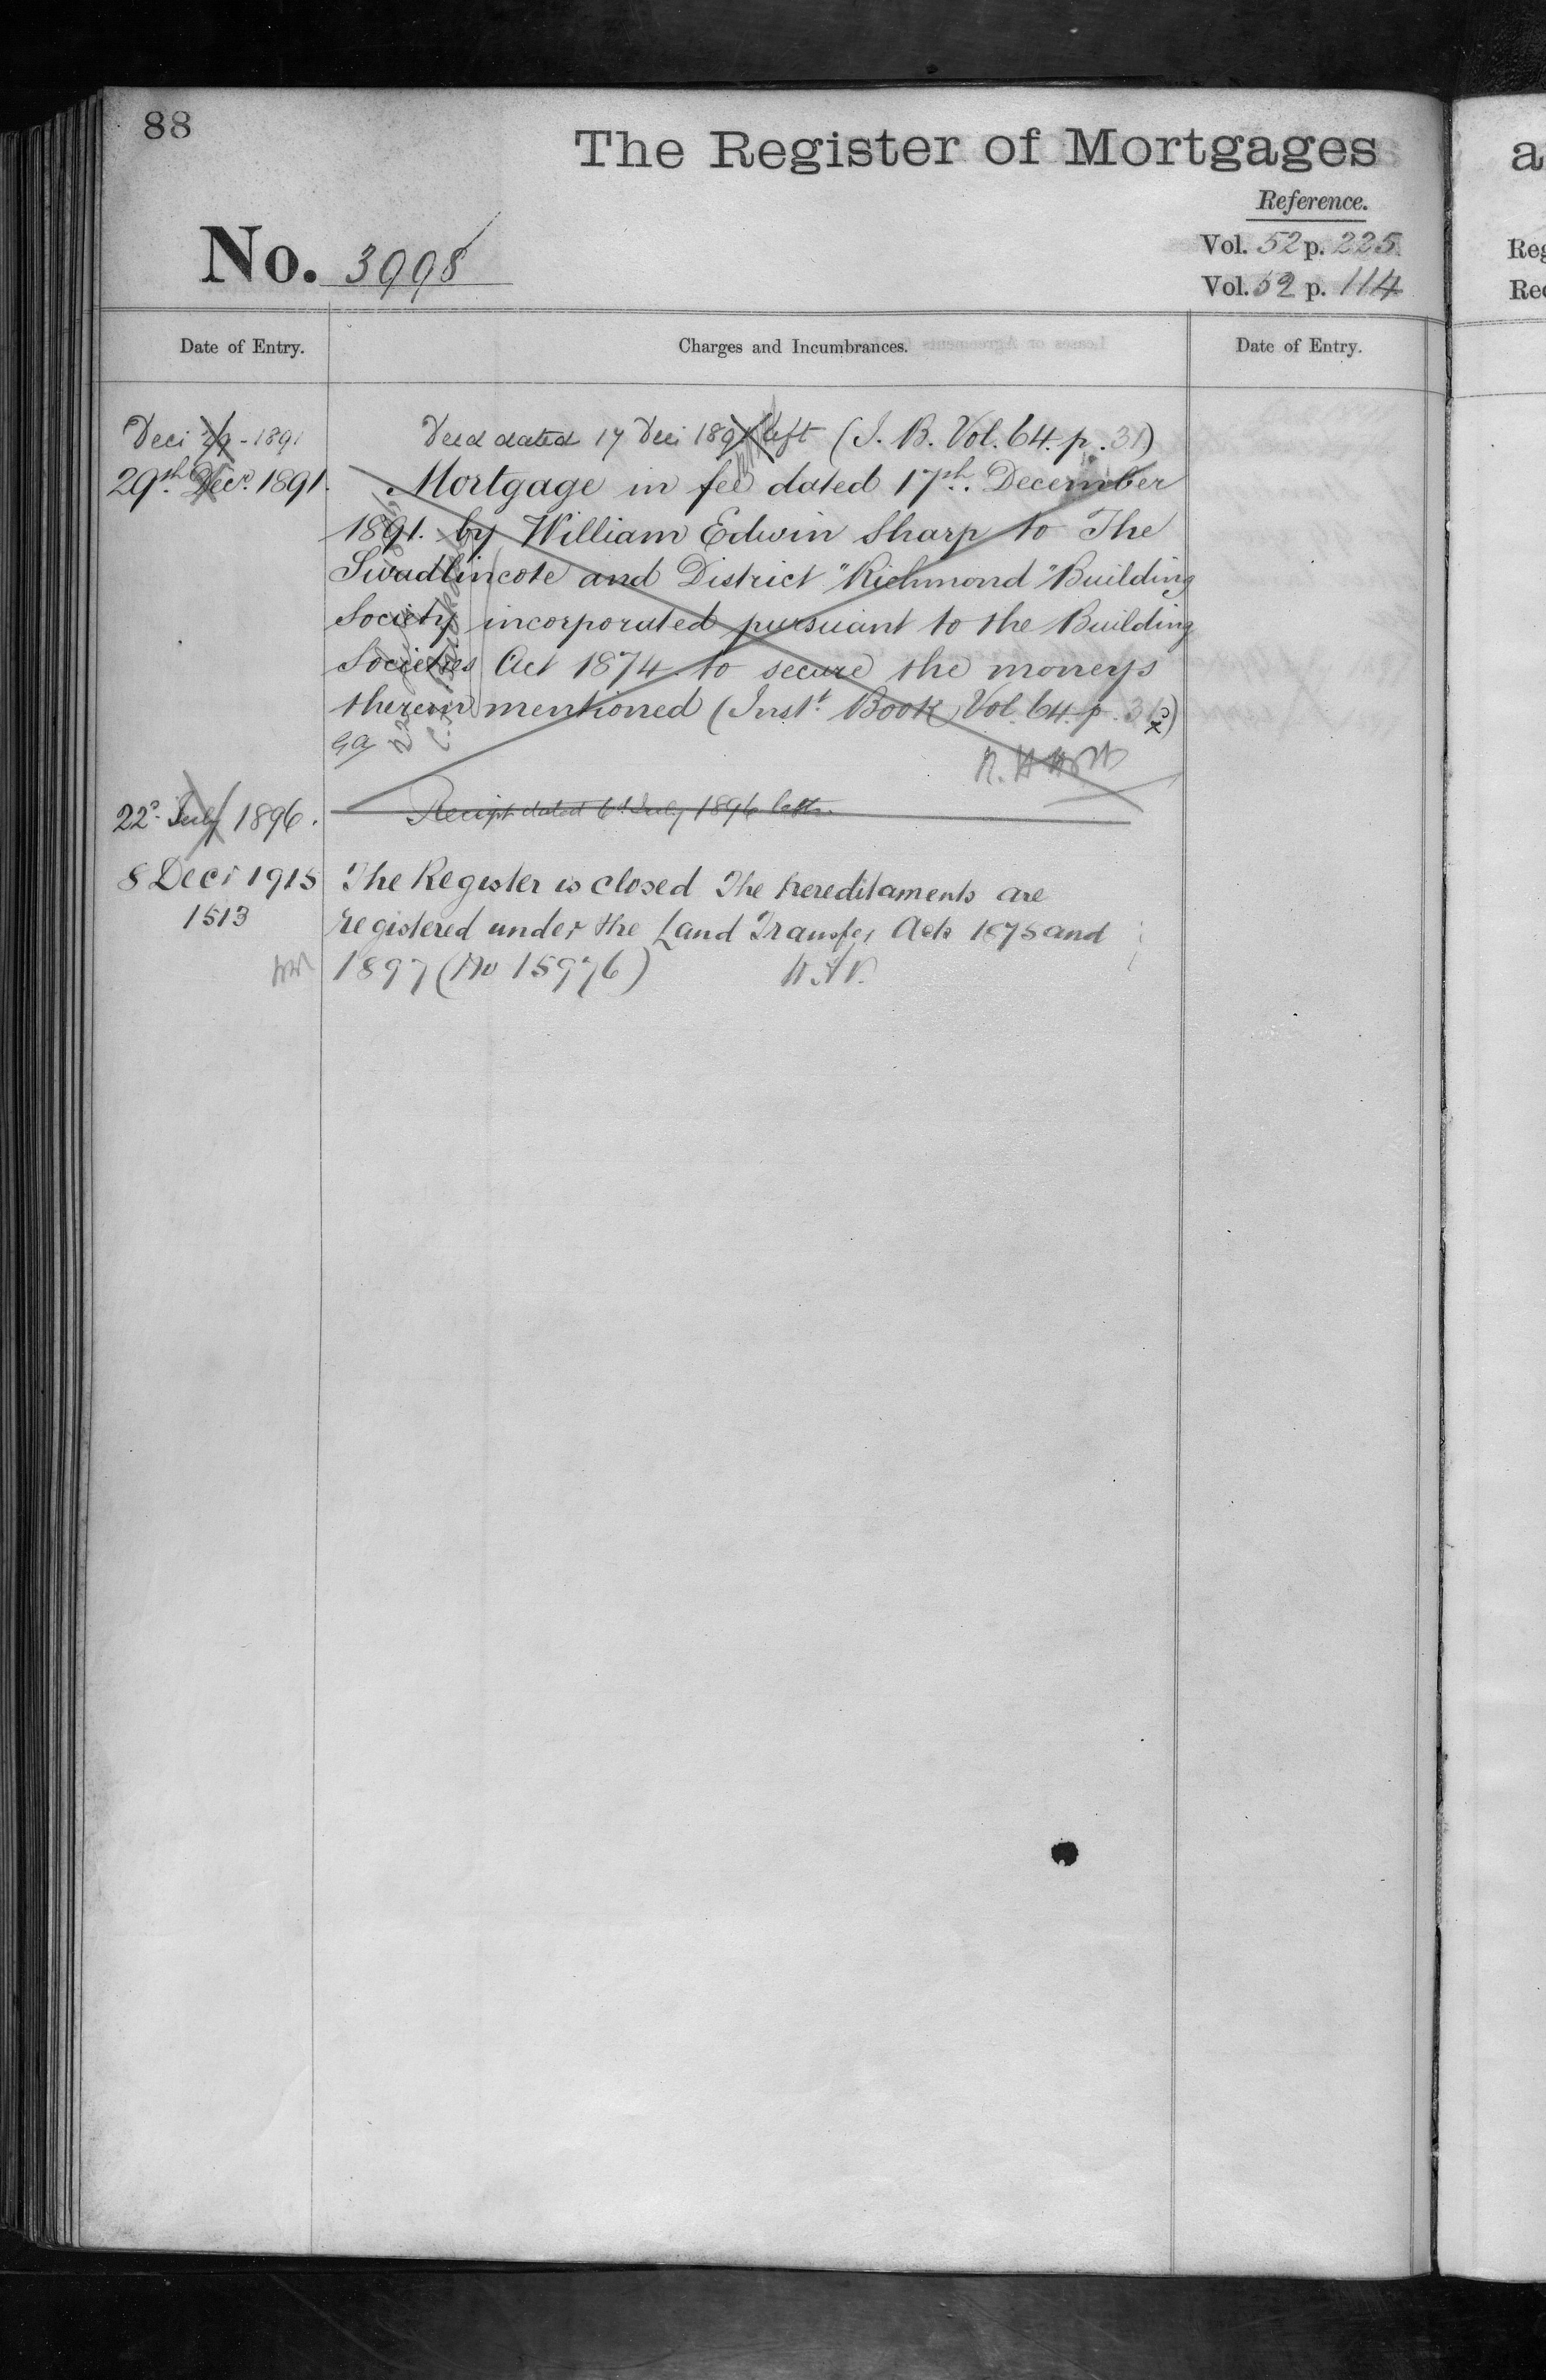 88
The Register of Mortgages
Reference.
No. 3998
Vol. 52 p. 225
Vol. 52 p. 114
Date of Entry.
Charges and Incumbrances.
Date of Entry.
Deci 29 - 1891
Deed dated 17 Deci 1891 left (I. B. Vol. 64. p. 31)
29th Decr. 1891.
Mortgage in fee dated 17th. December
1891. by William Edwin Sharp to The
Swadlincote and District "Richmond" Building
Society incorporated pursuant to the Building
Societies Act 1874 to secure the moneys
therein mentioned (Inst. Book Vol. 64. p. 31)
22d July 1896.
Receipt dated 6th July 1896 left.
8 Decr 1915
The Register is closed The hereditaments are
1513
registered under the Land Transfer Acts 1875 and
1897 (No 15976)
a
Reg
Rec